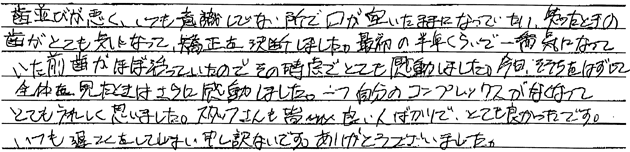 歯並びが悪く、いつも意識してない所で口が空いたままになっていたり、笑ったときの
歯がとても気になって、矯正を決断しました。最初の半年くらいで一番気になって
いた前歯がほぼ治っていたのでその時点でとても感動しました。今日、そうちをはずして
全体を見たときはさらに感動しました。一つ自分のコンプレックスがなくなって
とてもうれしく思いました。スタッフさんも皆さん良い人ばかりで、とても良かったです。
いつも遅こくをしてしまい申し訳ないです。ありがとうございました。